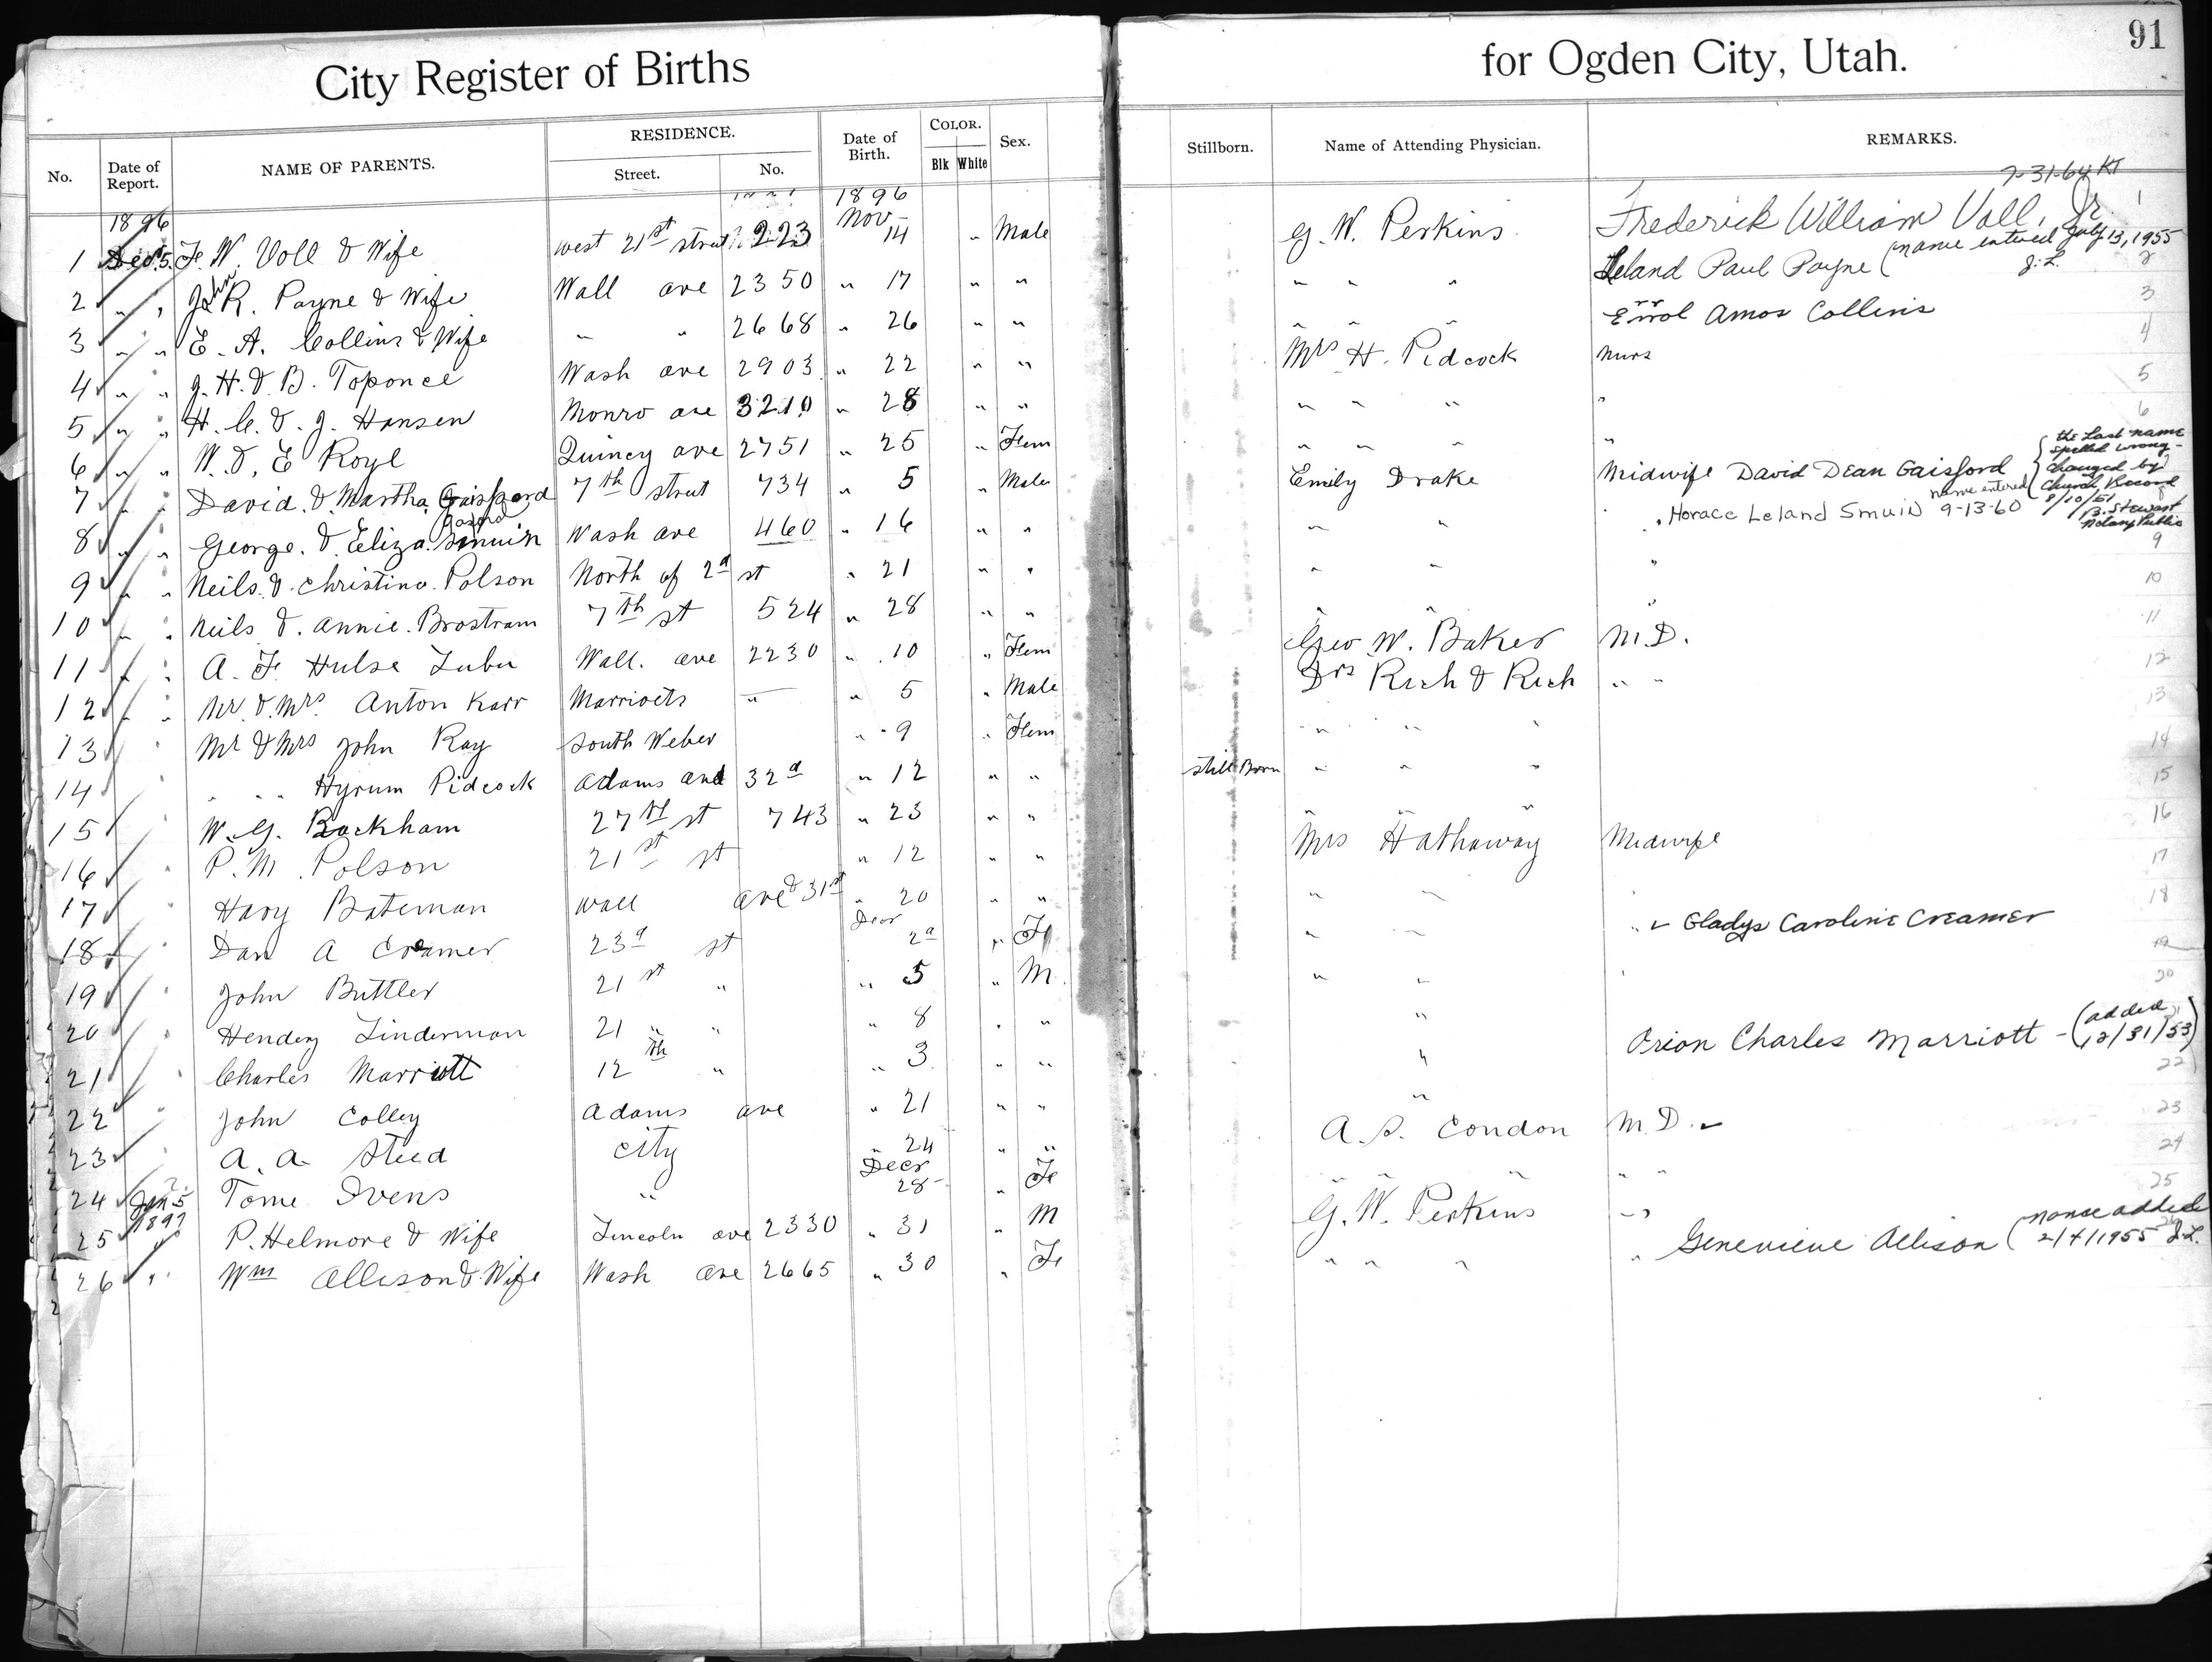 City Register of Births for Ogden City, Utah. 91
No. Date of Report. NAME OF PARENTS. RESIDENCE. Street. No. Date of Birth. COLOR. Blk White Sex. Stillborn. Name of Attending Physician. REMARKS.
7-31-64 KT
1896 1896 Nov
1 Dec 5. F. W. Voll & Wife west 21st street 223 14 " Male G. W. Perkins Frederick William Voll, Jr 1
2 " " John R. Payne & Wife Wall ave 2350 " 17 " " " " " Leland Paul Payne (name entered July 13, 1955 J.L. 2
3 " " E. A. Collins & Wife " " 2668 " 26 " " " " " Errol Amos Collins 3
4 " " J. H. & B. Toponce Wash ave 2903 " 22 " " Mrs H. Pidcock Nurs 4
5 " " H. C. & J. Hansen Monro ave 3210 " 28 " " " " " " 5
6 " " W. & E Royl Quincy ave 2751 " 25 " Fem " " " " 6
7 " " David & Martha Gaisford 7th street 734 " 5 " Male Emily Drake Midwife David Dean Gaisford { the Last name spelled wrong - changed by Church Record 8/10/51 B. Stewart Notary Public
8 " " George & Eliza Smuin Wash ave 460 " 16 " " " " " Horace Leland Smuin name entered 9-13-60
9 " " Neils & Christina Polson North of 2d st " 21 " " " " " 9
10 " " Neils & Annie Brostram 7th st 524 " 28 " " " " " 10
11 " " A. F. Hulse Wall. ave 2230 " 10 " Fem Geo W. Baker M.D. 11
12 " " Mr & Mrs Anton Karr Marriotts " " 5 " Male Drs Rich & Rich " " 12
13 " Mr & Mrs John Ray South Weber " 9 " Fem " " " 13
14 " " " Hyrum Pidcock Adams and 32d " 12 " " Still Born " " " 14
15 " W. G. Backham 27th st 743 " 23 " " " " " 15
16 " P. M. Polson 21st st " 12 " " Mrs Hathaway Midwife 16
17 " Hary Bateman Wall ave & 31st " 20 " " " " " 17
18 " Dan A Creamer 23d st Decr 2d " F " " " Gladys Caroline Creamer 18
19 " John Buttler 21st " " 5 " M " " " 19
20 " Hendry Linderman 21 " " " 8 " " " 20
21 " Charles Marriott 12th " " 3 " " " Orion Charles Marriott - (added 12/31/53)
22 " John Colley Adams ave " 21 " " " 22
23 " A. A. Steed City " 24 " " A. S. Condon M.D. 23
24 Tome Ivens " Decr 28 " Fe " " " " " 24
25 Jan 5 1897 P. Helmore & Wife Lincoln ave 2330 " 31 " M G. W. Perkins " " 25
26 " " Wm Allison & Wife Wash ave 2665 " 30 " Fe " " " " Genevieve Allison (name added 2/4/1955 J.L.